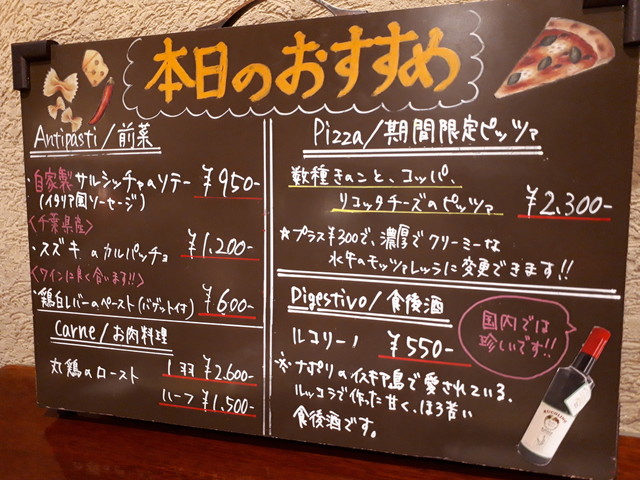 本日のおすすめ
Antipasti/前菜
・自家製サルシッチャのソテー ¥950-
(イタリア風ソーセージ)
<千葉県産>
・スズキのカルパッチョ ¥1,200-
<ワインに良く合います!!>
・鶏白レバーのペースト(バゲット付) ¥600-
Carne/お肉料理
丸鶏のロースト 1羽 ¥2,600-
ハーフ ¥1,500-
Pizza/期間限定ピッツァ
数種きのこと、コッパ、
リコッタチーズのピッツァ ¥2,300-
☆プラス¥300で、濃厚でクリーミーな
水牛のモッツァレッラに変更できます!!
Digestivo/食後酒
ルコリーノ ¥550-
国内では
珍しいです!!
☆ナポリのイスキア島で愛されている、
ルッコラで作った甘く、ほろ苦い
食後酒です。